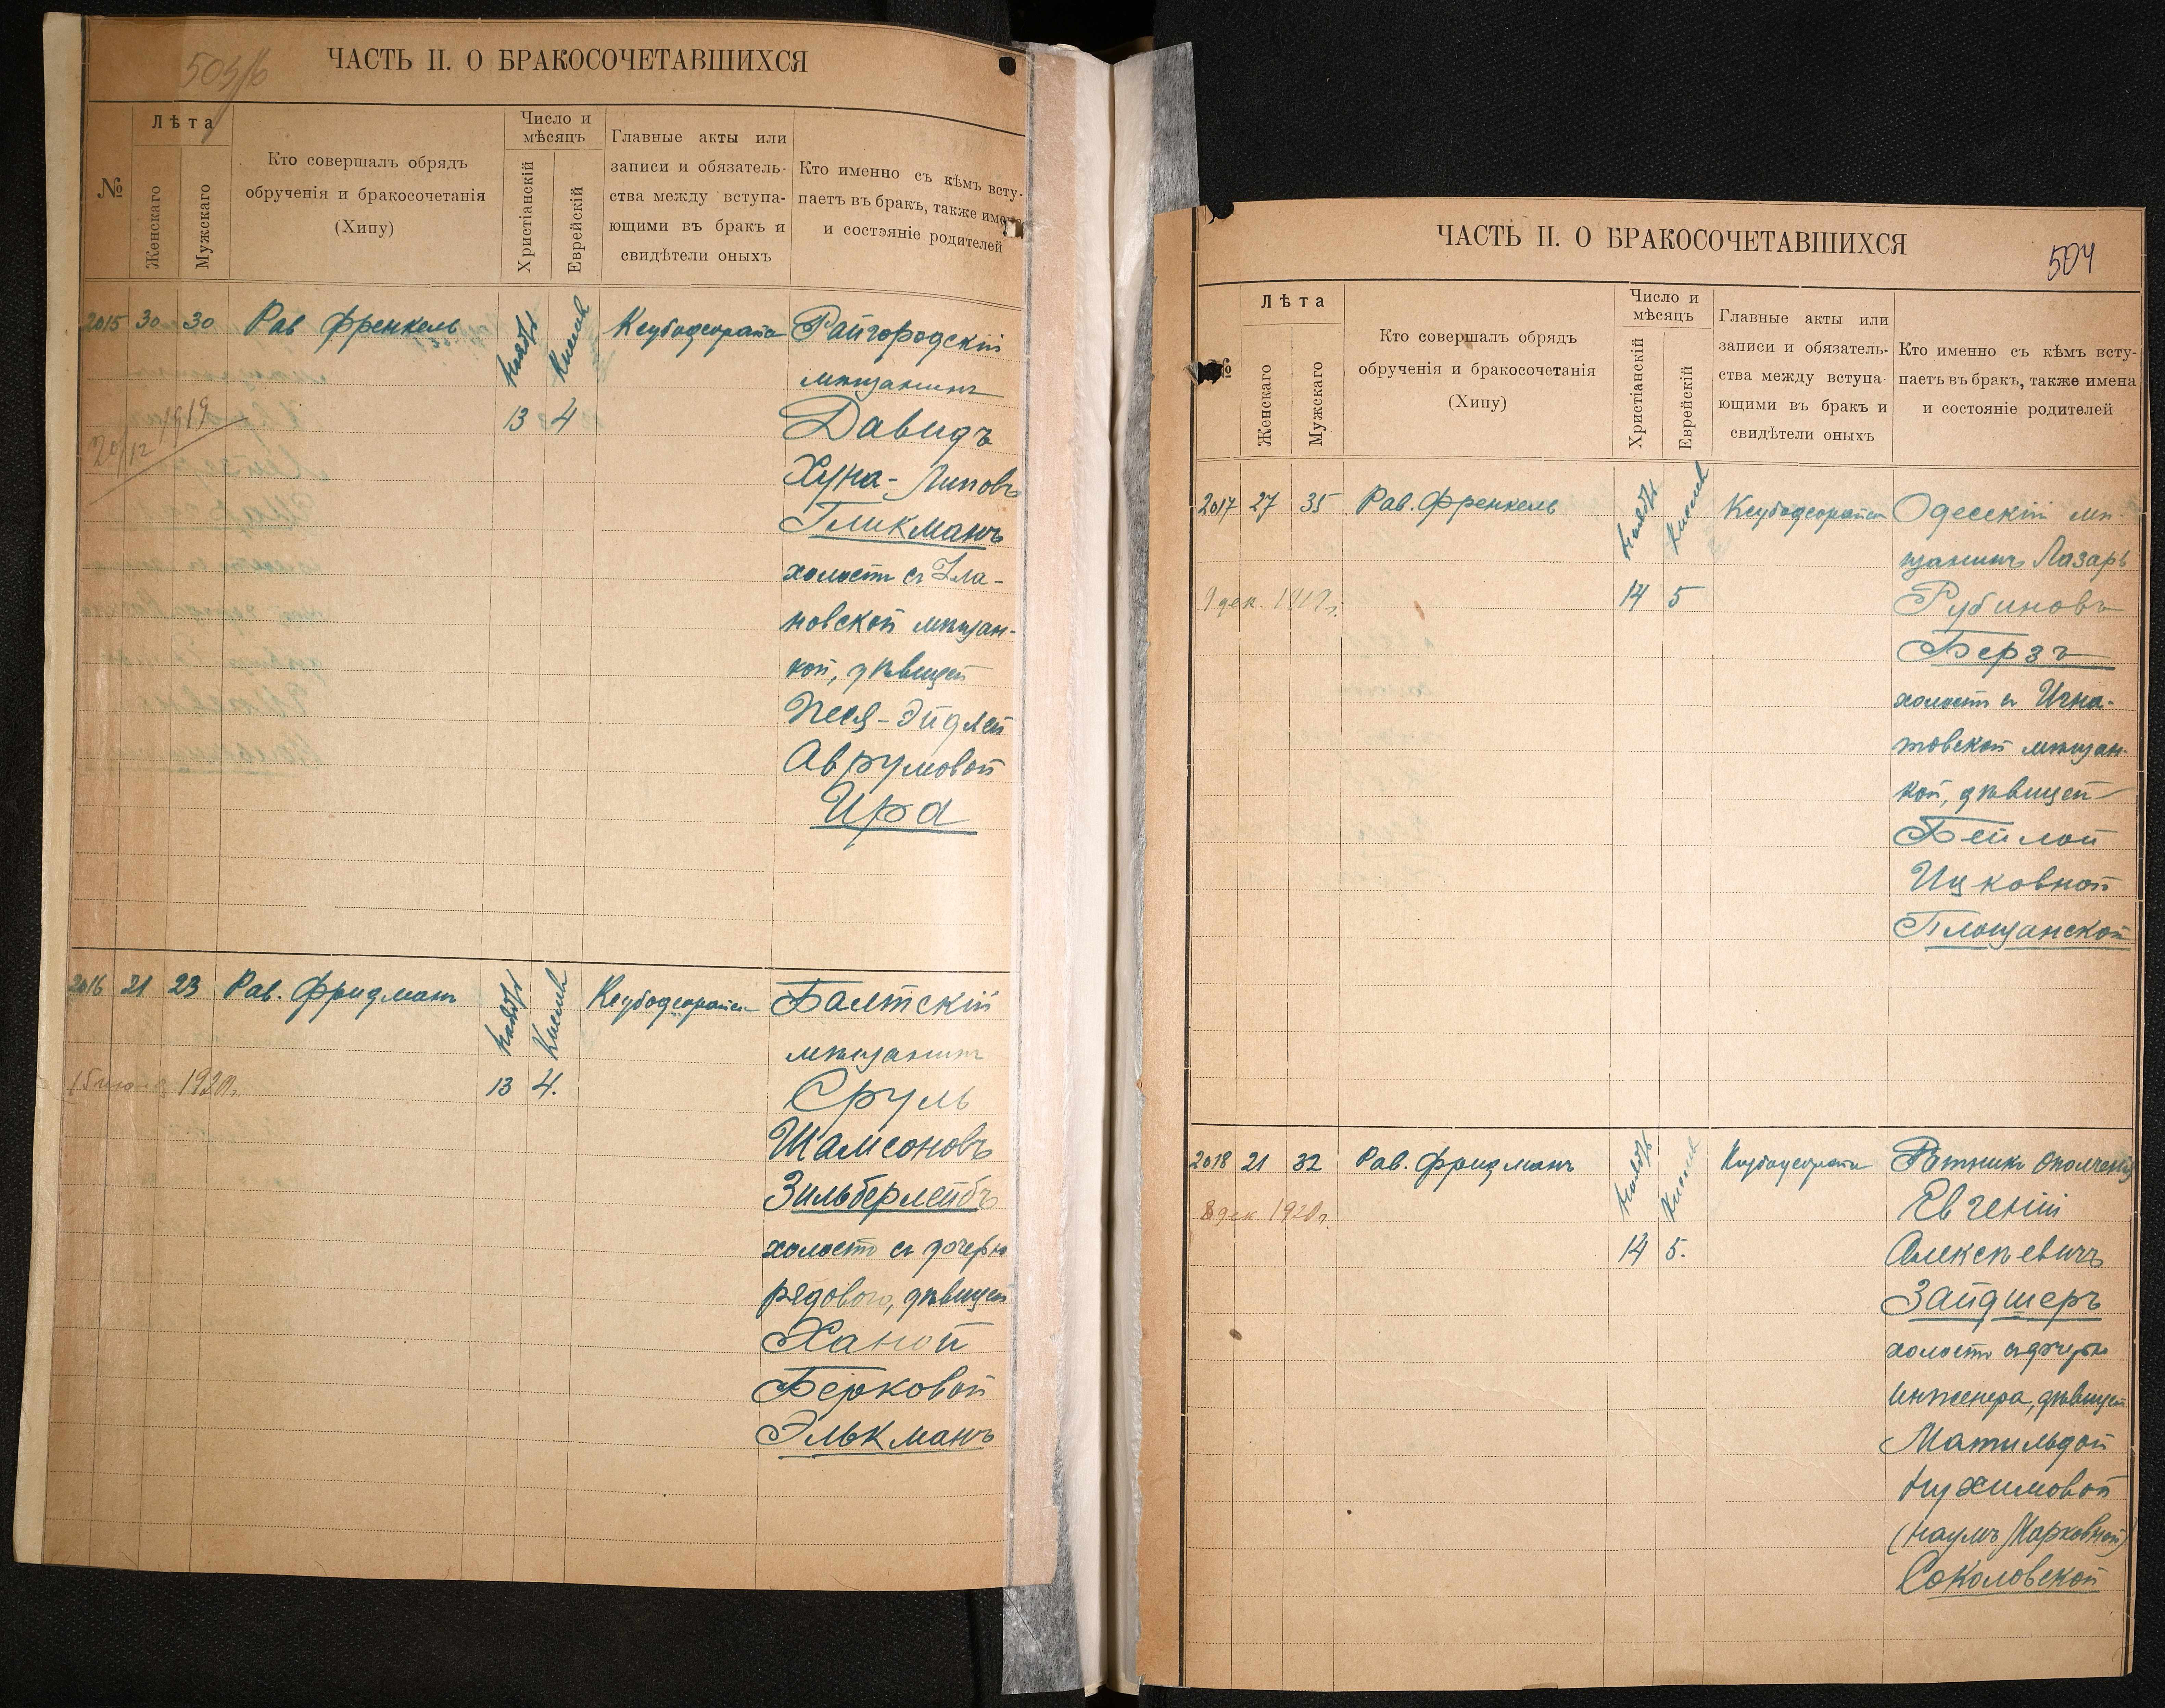 503/б
ЧАСТЬ II. О БРАКОСОЧЕТАВШИХСЯ
№
Лѣта
Женскаго
Мужскаго
Кто совершалъ обрядъ
обрученія и бракосочетанія
(Хипу)
Число и
мѣсяцъ
Христіанскій
Еврейскій
Главные акты или
записи и обязатель-
ства между вступа-
ющими въ бракъ и
свидѣтели оныхъ
Кто именно съ кѣмъ всту-
паетъ въ бракъ, также имена
и состояніе родителей
2015 30 30 Рав Френкель
Ноябрь
Кислев
13 4
20/12 1919
Райгородскій
мѣщанинъ
Давидъ
Хуна-Липовъ
Гликманъ
холостъ съ Ула-
новской мѣщан-
кой, дѣвицей
Песя-Эйдлей
Аврумовой
Ира
2016 21 23 Рав. Фридманъ
Ноябрь
Кислев
13 4.
1920г.
Балтскій
мѣщанинъ
Сруль
Шамсоновъ
Зильберлейбъ
холостъ съ дочерью
рядового, дѣвицей
Ханой
Берковой
Элькманъ
504
ЧАСТЬ II. О БРАКОСОЧЕТАВШИХСЯ
№
Лѣта
Женскаго
Мужскаго
Кто совершалъ обрядъ
обрученія и бракосочетанія
(Хипу)
Число и
мѣсяцъ
Христіанскій
Еврейскій
Главные акты или
записи и обязатель-
ства между вступа-
ющими въ бракъ и
свидѣтели оныхъ
Кто именно съ кѣмъ всту-
паетъ въ бракъ, также имена
и состояніе родителей
2017 27 35 Рав. Френкель
Ноябрь
Кислев
14 5
9 дек. 1919г.
Одесскій мѣ-
щанинъ Лазарь
Рубиновъ
Берзъ
холостъ съ Игна-
товской мѣщан-
кой, дѣвицей
Бейлой
Ицковной
Площанской
2018 21 32 Рав. Фридманъ
Ноябрь
Кислев
14 5.
8 дек 1920г.
Ратникъ ополченія
Евгеній
Алексѣевичъ
Зайдшеръ
холостъ съ дочерью
инженера, дѣвицей
Матильдой
Нухимовой
(Наумъ Марковной)
Соколовской